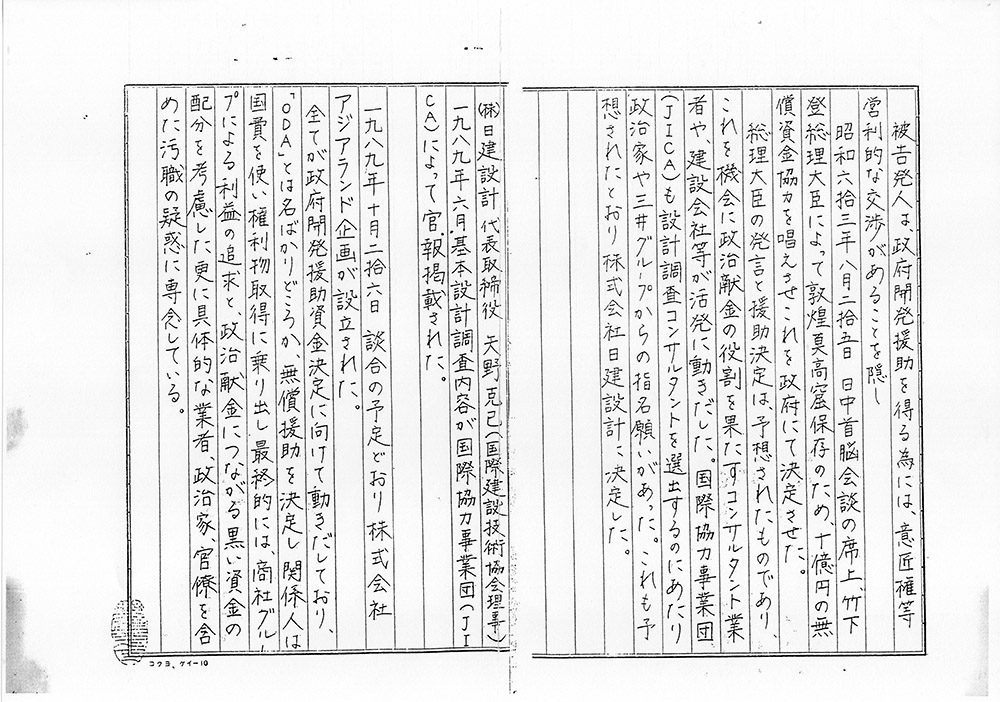 被告発人は、政府開発援助を得る為には、意匠権等
営利的な交渉があることを隠し
昭和六拾三年八月二拾五日 日中首脳会談の席上、竹下
登総理大臣によって敦煌莫高窟保存のため、十億円の無
償資金協力を唱えさせこれを政府にて決定させた。
総理大臣の発言と援助決定は、予想されたものであり、
これを機会に政治献金の役割を果たすコンサルタント業
者や、建設会社等が活発に動きだした。国際協力事業団
(JICA)も設計調査コンサルタントを選出するのにあたり
政治家や三井グループからの指名願いがあった。これも予
想されたとおり株式会社日建設計に決定した。
(株)日建設計 代表取締役 矢野克己(国際建設技術協会理事)
一九八九年六月.基本設計調査内容が国際協力事業団(JI
CA)によって官.報掲載された。
一九八九年十月二拾六日 談合の予定どおり株式会社
アジアランド企画が設立された。
全てが政府開発援助資金決定に向けて動きだしており、
「ODA」とは名ばかりどころか、無償援助を決定し関係人は
国費を使い権利物取得に乗り出し最終的には、商社グルー
プによる利益の追求と、政治献金につながる黒い資金の
配分を考慮した更に具体的な業者、政治家、官僚を含
めた汚職の疑惑に専念している。
コクヨ、ケイー10